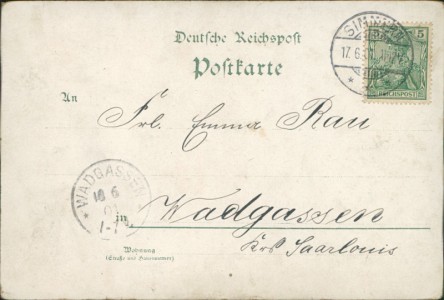 Deutsche Reichspost
Postkarte
SIMMERN
17. 6.
5
REICHSPOST
An
Frl. Emma Rau
WADGASSEN
18 6
01
1-7
in Wadgassen
Krs Saarlouis
Wohnung
(Straße und Hausnummer)